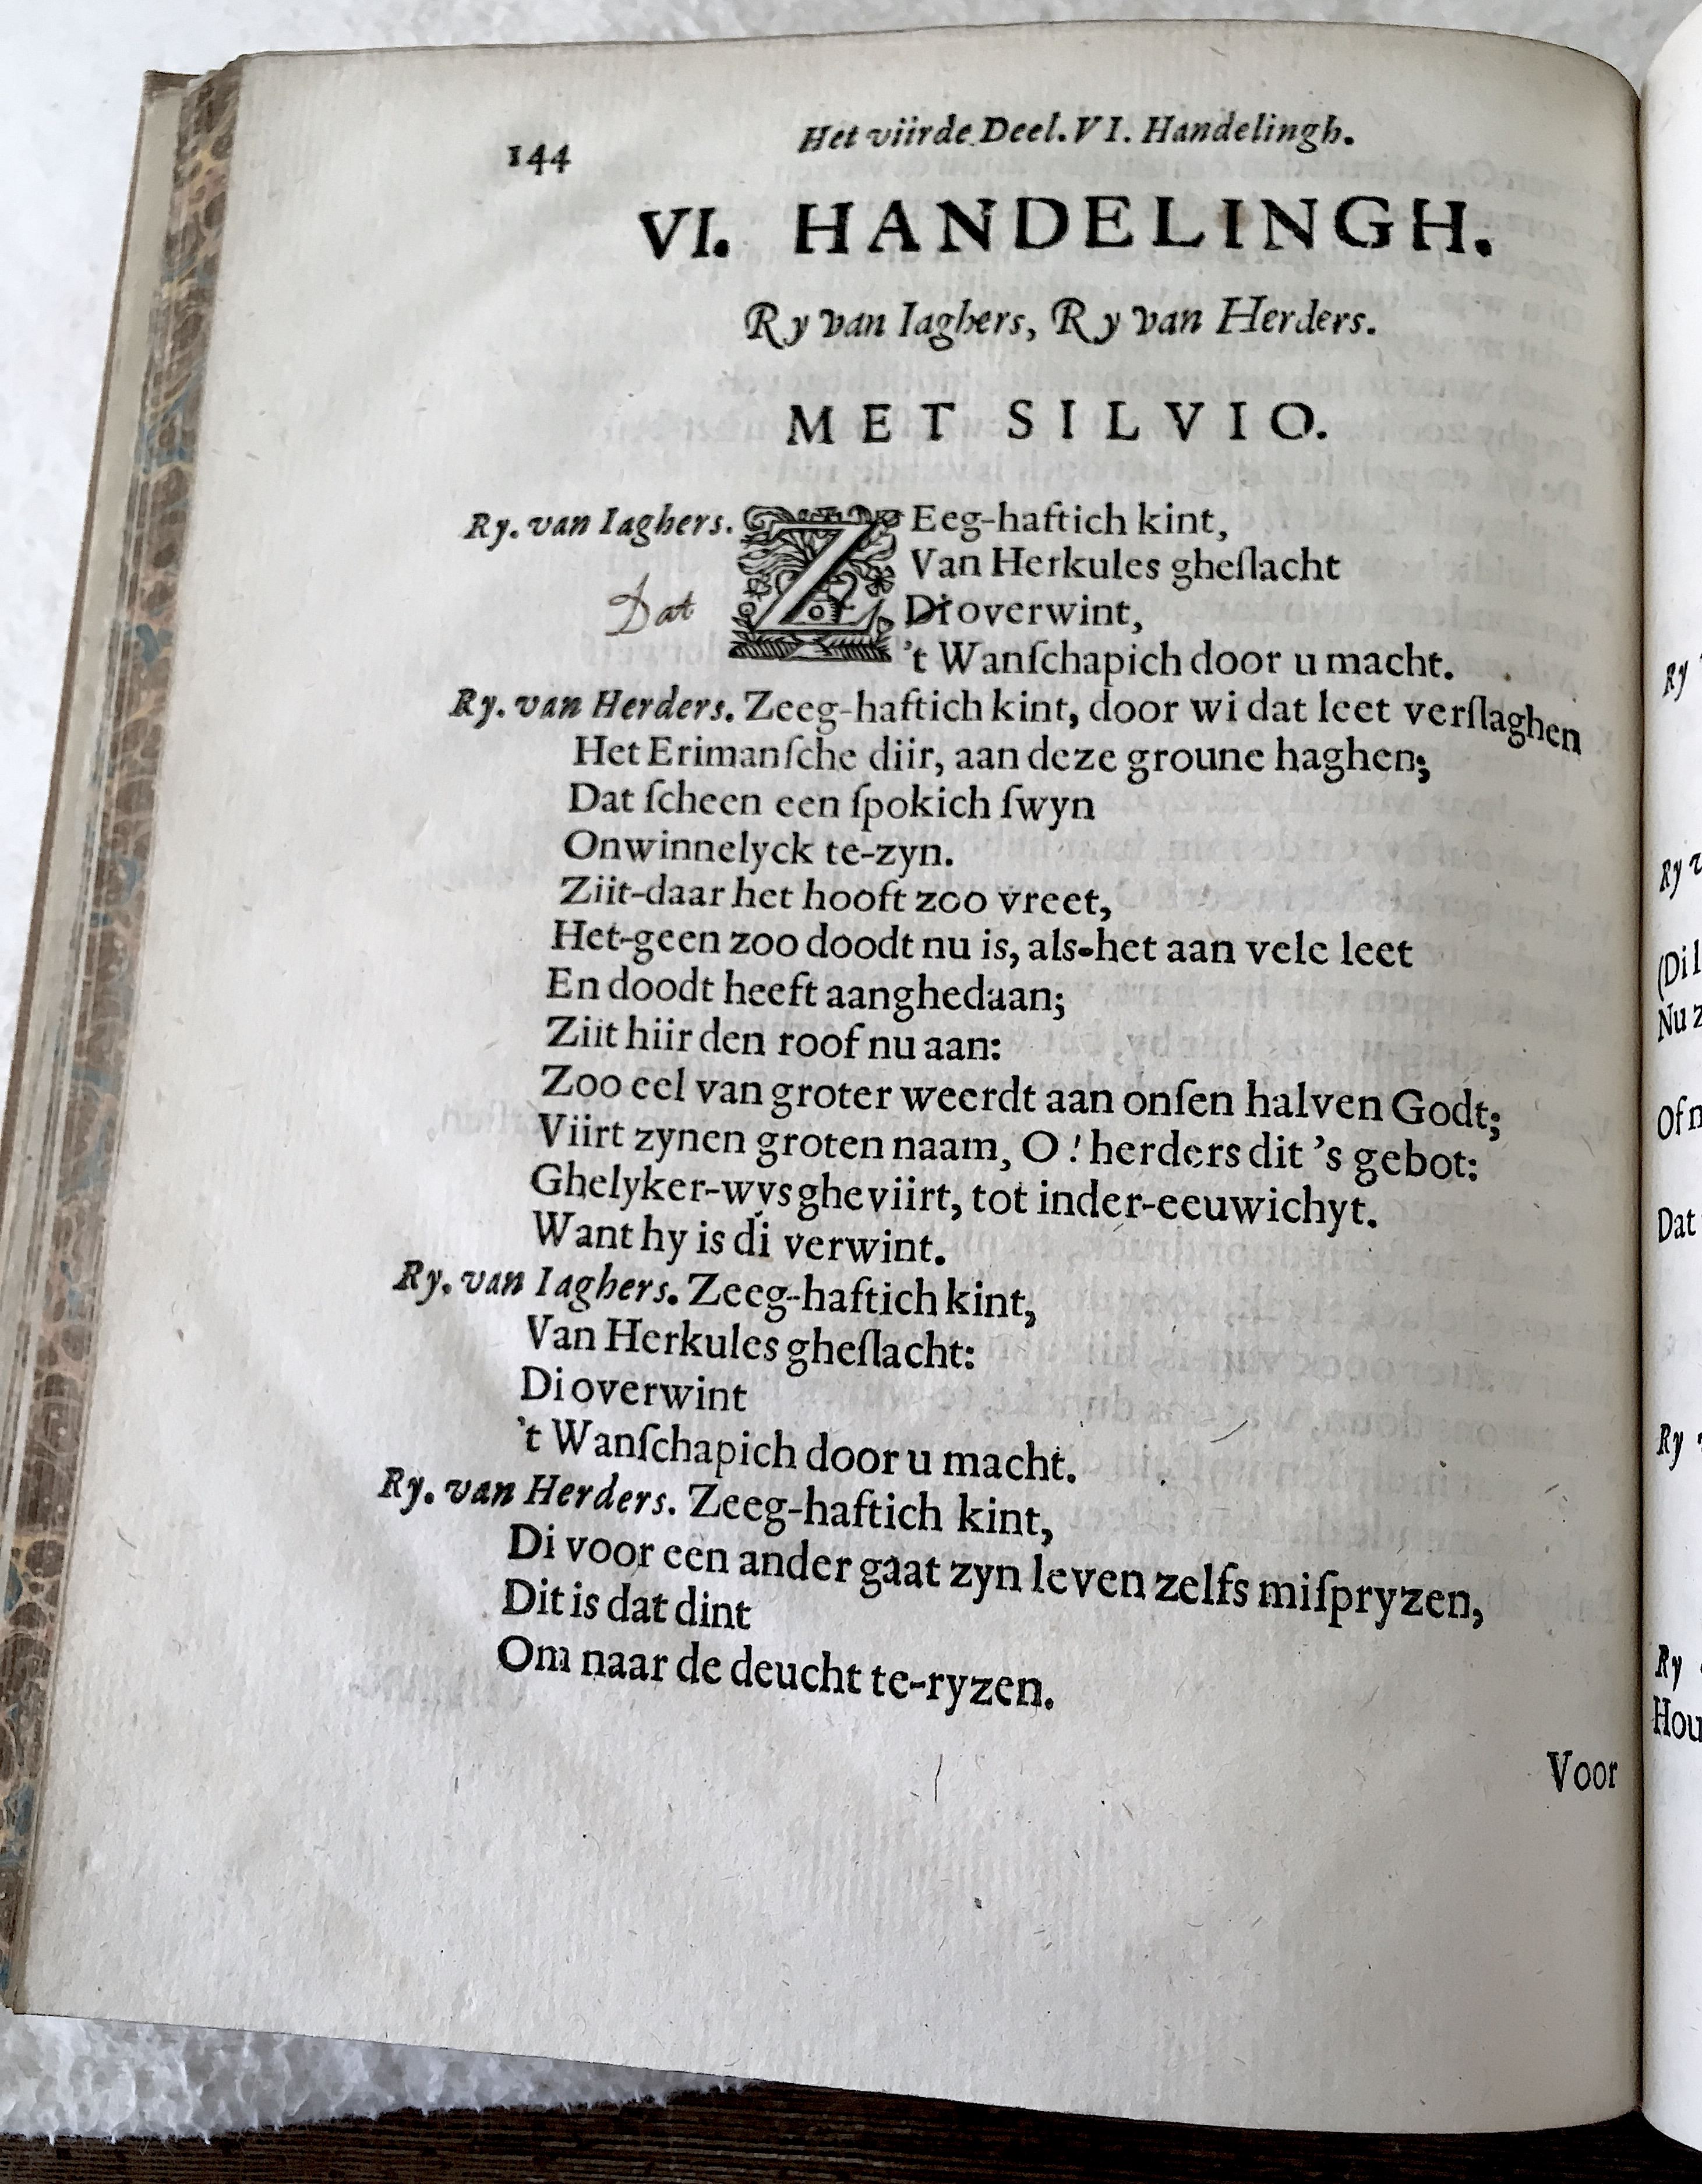 144
Het viirde Deel. VI. Handelingh.
VI. HANDELINGH.
Ry van Iaghers, Ry van Herders.
MET SILVIO.
Ry. van Iaghers. ZEeg-haftich kint,
Van Herkules gheſlacht
Dat Di overwint,
't Wanſchapich door u macht.
Ry. van Herders. Zeeg-haftich kint, door wi dat leet verſlaghen
Het Erimanſche diir, aan deze groune haghen;
Dat ſcheen een ſpokich ſwyn
Onwinnelyck te-zyn.
Ziit-daar het hooft zoo vreet,
Het-geen zoo doodt nu is, als-het aan vele leet
En doodt heeft aanghedaan;
Ziit hiir den roof nu aan:
Zoo eel van groter weerdt aan onſen halven Godt;
Viirt zynen groten naam, O! herders dit 's gebot:
Ghelyker-wys gheviirt, tot inder-eeuwichyt.
Want hy is di verwint.
Ry. van Iaghers. Zeeg-haftich kint,
Van Herkules gheſlacht:
Di overwint
't Wanſchapich door u macht.
Ry. van Herders. Zeeg-haftich kint,
Di voor een ander gaat zyn leven zelfs miſpryzen,
Dit is dat dint
Om naar de deucht te-ryzen.
Voor
Ry
Ry v
(Di l
Nu z
Of n
Dat
Ry
Ry
Hou